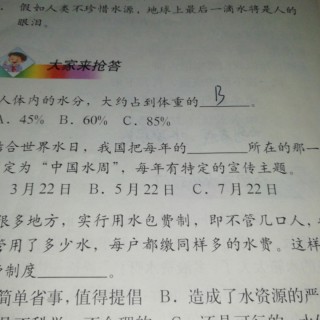 ．假如人类不珍惜水源，地球上最后一滴水将是人的
眼泪。
大家来抢答
人体内的水分，大约占到体重的 B 。
A．45% B．60% C．85%
合世界水日，我国把每年的________所在的那一
定为“中国水周”，每年有特定的宣传主题。
3月22日 B．5月22日 C．7月22日
很多地方，实行用水包费制，即不管几口人，
管用了多少水，每户都缴同样多的水费。这样
制度________。
简单省事，值得提倡 B．造成了水资源的严